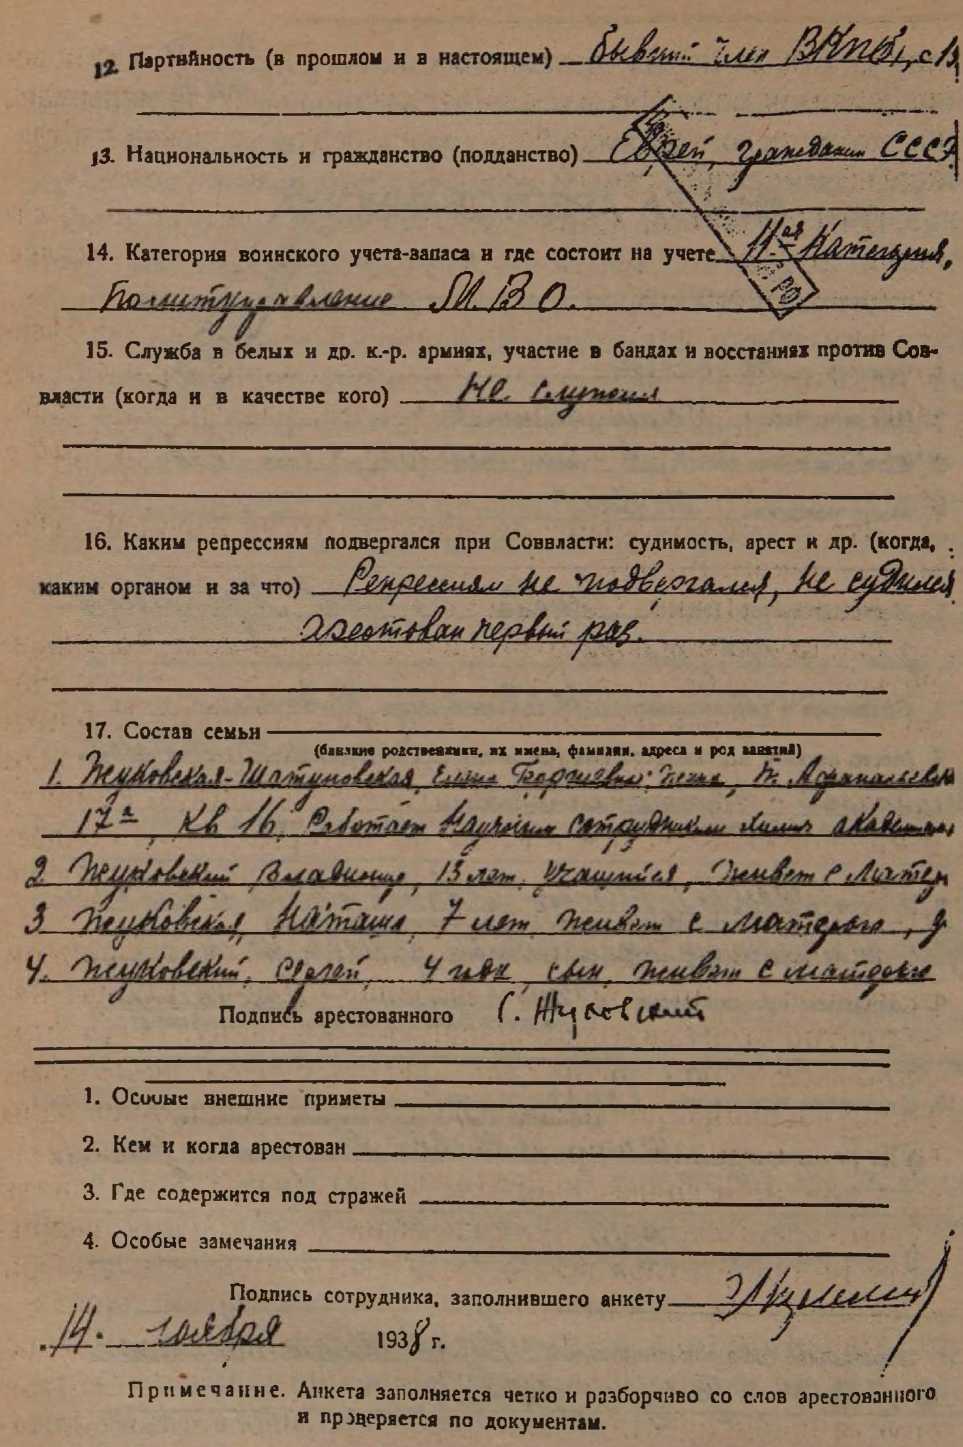 12. Партийность (в прошлом и в настоящем) бывший член ВКП(б), с
13. Национальность и гражданство (подданство) Еврей, гражданин СССР
14. Категория воинского учета-запаса и где состоит на учете 11ая Категория,
Политуправление М.В.О.
15. Служба в белых и др. к.-р. армиях, участие в бандах и восстаниях против Сов-
власти (когда и в качестве кого) Не служил
16. Каким репрессиям подвергался при Соввласти: судимость, арест и др. (когда,
каким органом и за что) Репрессиям не подвергался, не судился
арестован первый раз.
17. Состав семьи
(близкие родственники, их имена, фамилии, адреса и род занятий)
1. Жуковская-Шатуновская, Елена Георгиевна, жена,
17а, кв 16. Работает Научным сотрудником
2 Жуковский Владимир, 13 лет, учащийся, живет с матер
3 Жуковская, Наташа, 7 лет живет с матерью, д
4. Жуковский, Сергей, 4 года, сын, живет с матерью
Подпись арестованного С. Жуковский
1. Особые внешние приметы
2. Кем и когда арестован
3. Где содержится под стражей
4. Особые замечания
Подпись сотрудника, заполнившего анкету
14. ноября 1938 г.
Примечание. Анкета заполняется четко и разборчиво со слов арестованного
и проверяется по документам.